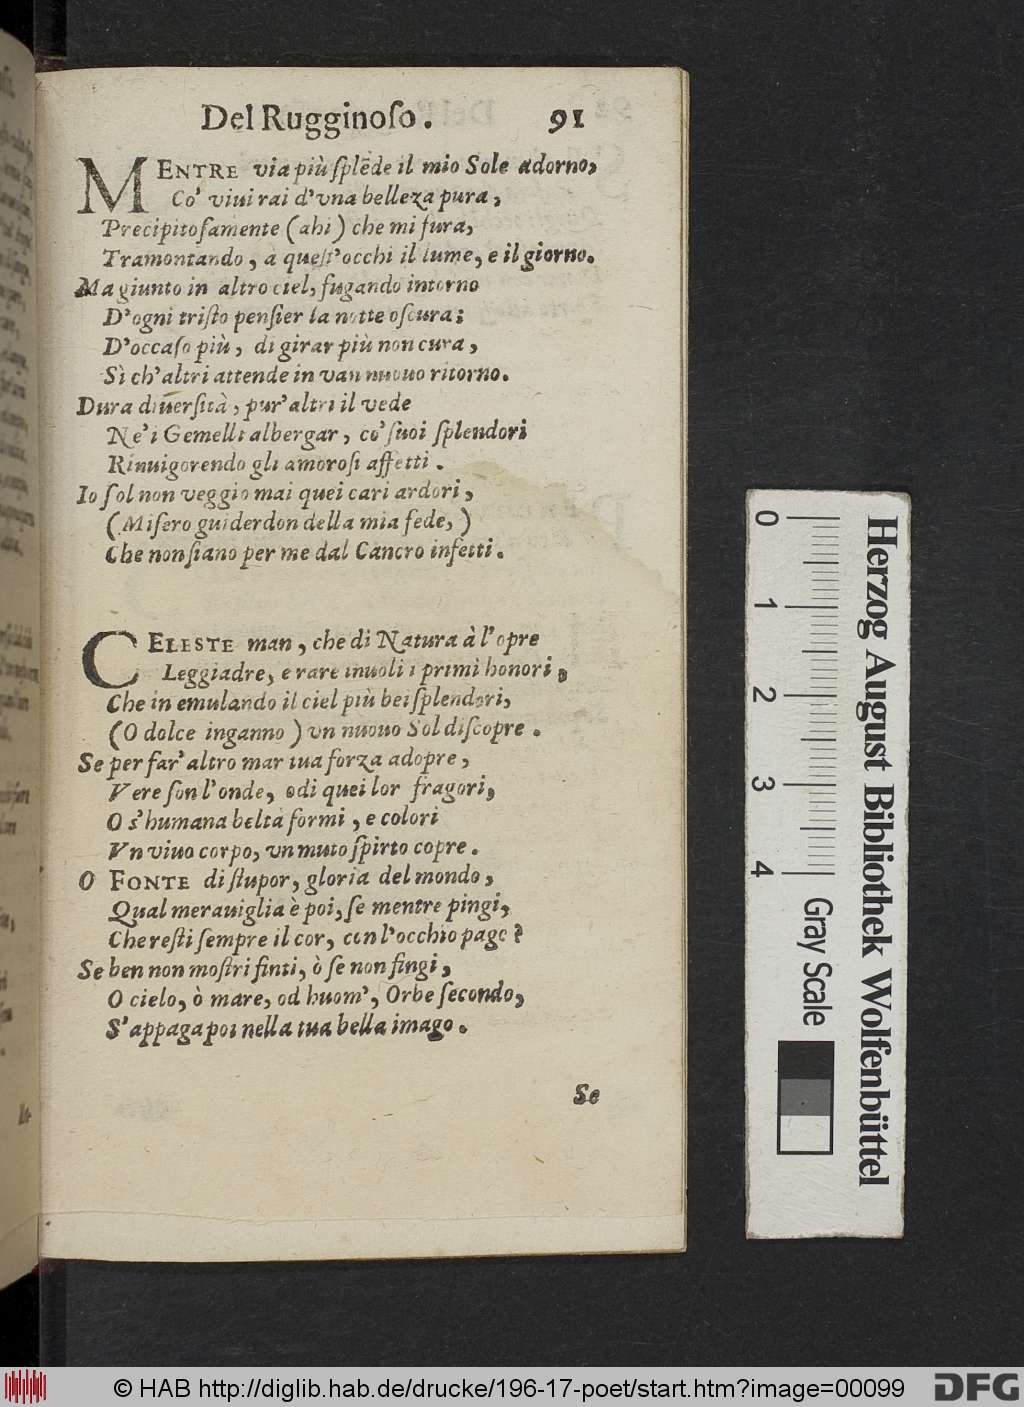 Del Rugginoſo. 91
MENTRE via più ſplẽde il mio Sole adorno,
Co' viui rai d'vna belleza pura,
Precipitoſamente (ahi) che mi fura,
Tramontando, à queſt'occhi il lume, e il giorno.
Ma giunto in altro ciel, fugando intorno
D'ogni triſto penſier la notte oſcura;
D'occaſo più, di girar più non cura,
Sì ch'altri attende in van nuouo ritorno.
Dura diuerſità, pur'altri il vede
Ne'i Gemelli albergar, co' ſuoi ſplendori
Rinuigorendo gli amoroſi affetti.
Io ſol non veggio mai quei cari ardori,
(Miſero guiderdon della mia fede,)
Che non ſiano per me dal Cancro infetti.
CELESTE man, che di Natura à l'opre
Leggiadre, e rare inuoli i primi honori,
Che in emulando il ciel più bei ſplendori,
(O dolce inganno) vn nuouo Sol diſcopre.
Se per far' altro mar tua forza adopre,
Vere ſon l'onde, odi quei lor fragori,
O s'humana beltà formi, e colori
Vn viuo corpo, vn muto ſpirto copre.
O FONTE di ſtupor, gloria del mondo,
Qual merauiglia è poi, ſe mentre pingi,
Che reſti ſempre il cor, con l'occhio pago?
Se ben non moſtri finti, ò ſe non fingi,
O cielo, ò mare, od huom', Orbe ſecondo,
S'appaga poi nella tua bella imago.
Se
0
1
2
3
4
Gray Scale
Herzog August Bibliothek Wolfenbüttel
© HAB http://diglib.hab.de/drucke/196-17-poet/start.htm?image=00099
DFG